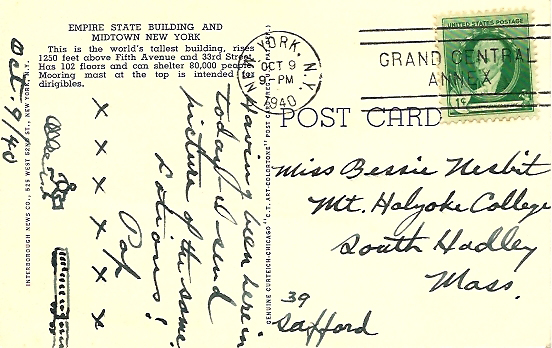 EMPIRE STATE BUILDING AND
MIDTOWN NEW YORK
This is the world's tallest building, rises
1250 feet above Fifth Avenue and 33rd Street.
Has 102 floors and can shelter 80,000 people.
Mooring mast at the top is intended for
dirigibles.
Oct. 9/40
Having been here in
today I send
picture of the same.
Pop
X X X X X X
INTERBOROUGH NEWS CO., 525 WEST 52ND ST., NEW YORK, N.Y.
GENUINE CURTEICH-CHICAGO "C.T. ART-COLORTONE" POST CARD
YORK, N.Y.
OCT 9
9 - PM
1940
GRAND CENTRAL
ANNEX
UNITED STATES POSTAGE
1¢
POST CARD
Miss Bessie Nesbit
Mt. Holyoke College
South Hadley
Mass.
39
Safford